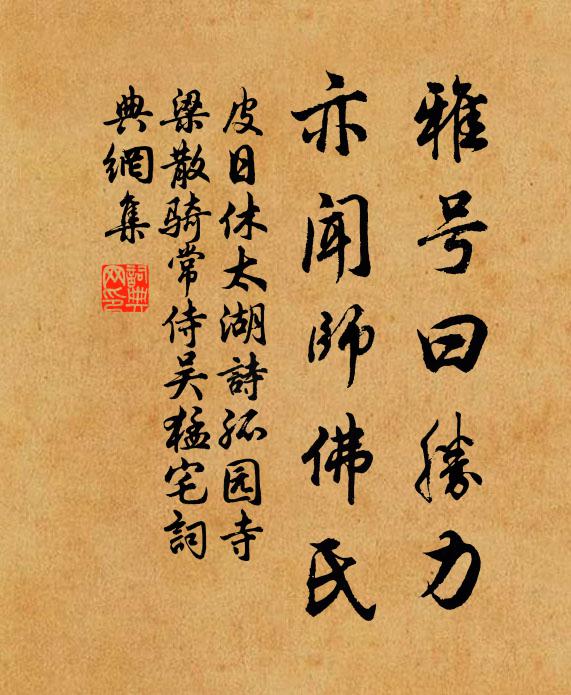 雅号曰勝力
亦闻師佛氏
皮日休太湖詩孤园寺
梁散骑常侍吴猛宅詞
典網集
詞典网印